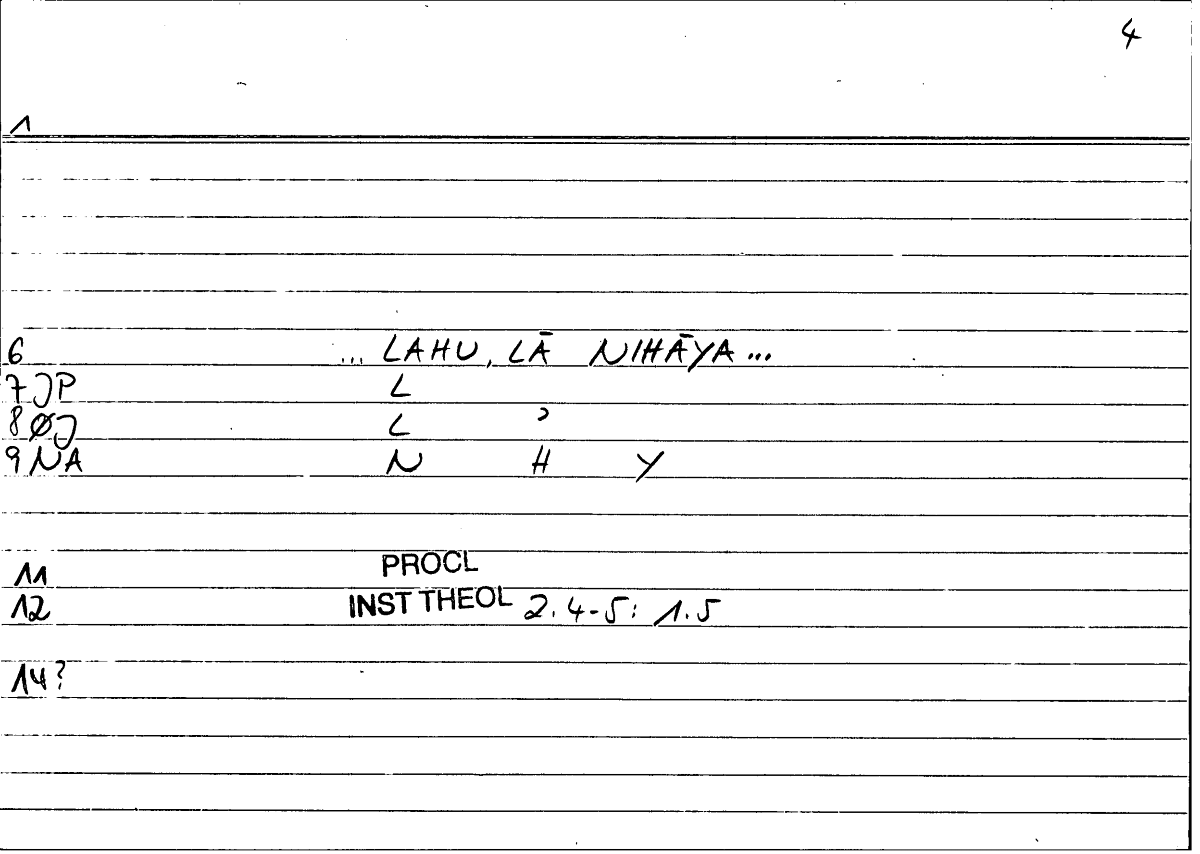 4
1
6 ... LAHU, LĀ NIHĀYA ...
7 JP L
8 ØJ L ʾ
9 NA N H Y
11 PROCL
12 INST THEOL 2.4-5: 1.5
14?